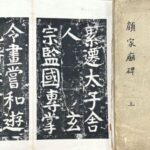 顏家廟碑 上
累遷太子舍
人 玄
宗監國專掌
令畫嘗和遊